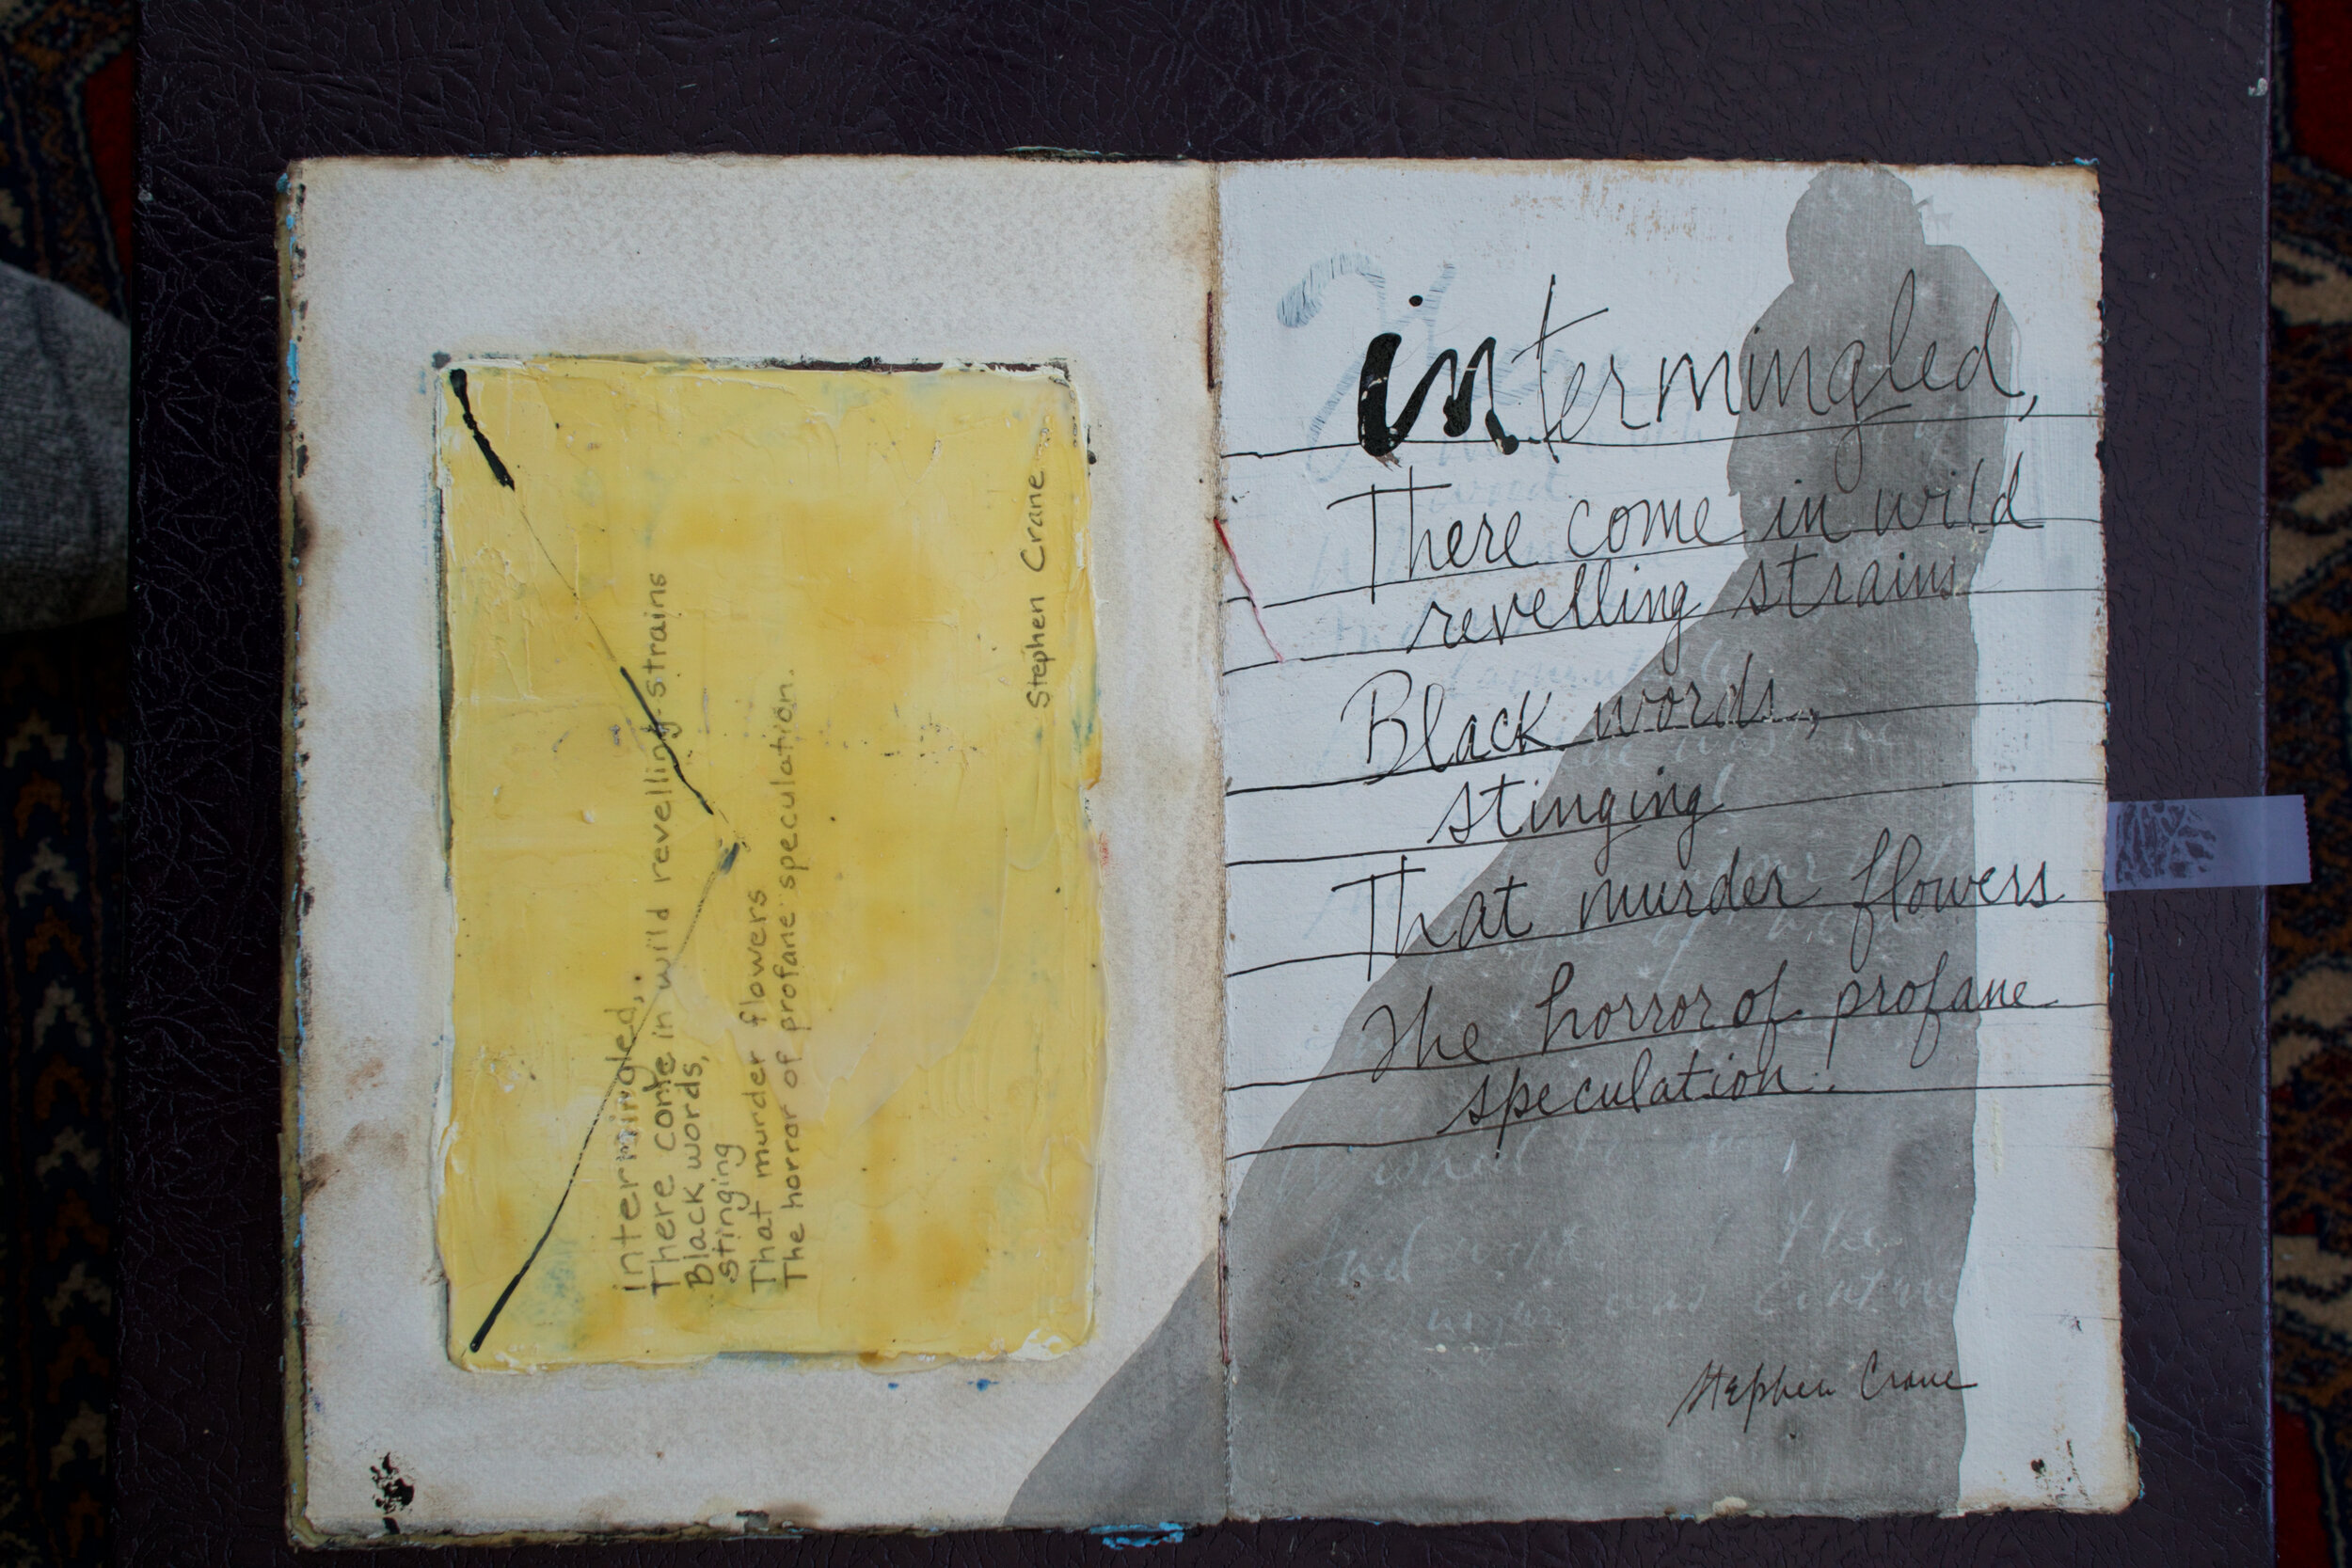 intermingled,
There come in wild revelling strains
Black words,
stinging
That murder flowers
The horror of profane speculation.
Stephen Crane
intermingled,
There come in wild
revelling strains
Black words,
stinging
That murder flowers
The horror of profane
speculation.
Stephen Crane